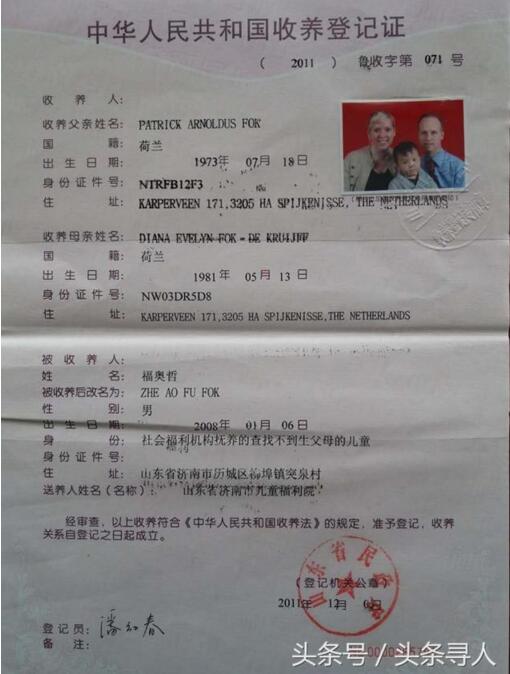 中华人民共和国收养登记证
( 2011 ) 鲁收字第 071 号
收养人:
收养父亲姓名: PATRICK ARNOLDUS FOK
国籍: 荷兰
出生日期: 1973年 07月 18日
身份证件号: NTRFB12F3
住址: KARPERVEEN 171,3205 HA SPIJKENISSE, THE NETHERLANDS
收养母亲姓名: DIANA EVELYN FOK - DE KRUIJFF
国籍: 荷兰
出生日期: 1981年 05月 13日
身份证件号: NW03DR5D8
住址: KARPERVEEN 171,3205 HA SPIJKENISSE,THE NETHERLANDS
被收养人:
姓名: 福奥哲
被收养后改名为: ZHE AO FU FOK
性别: 男
出生日期: 2008年 01月 06日
身份: 社会福利机构抚养的查找不到生父母的儿童
住址: 山东省济南市历城区柳埠镇突泉村
送养人姓名(名称): 山东省济南市儿童福利院
经审查,以上收养符合《中华人民共和国收养法》的规定,准予登记,收养
关系自登记之日起成立。
山东省民政厅
(登记机关公章)
2011年 12月 日
登记员:
备注:
头条号/头条寻人